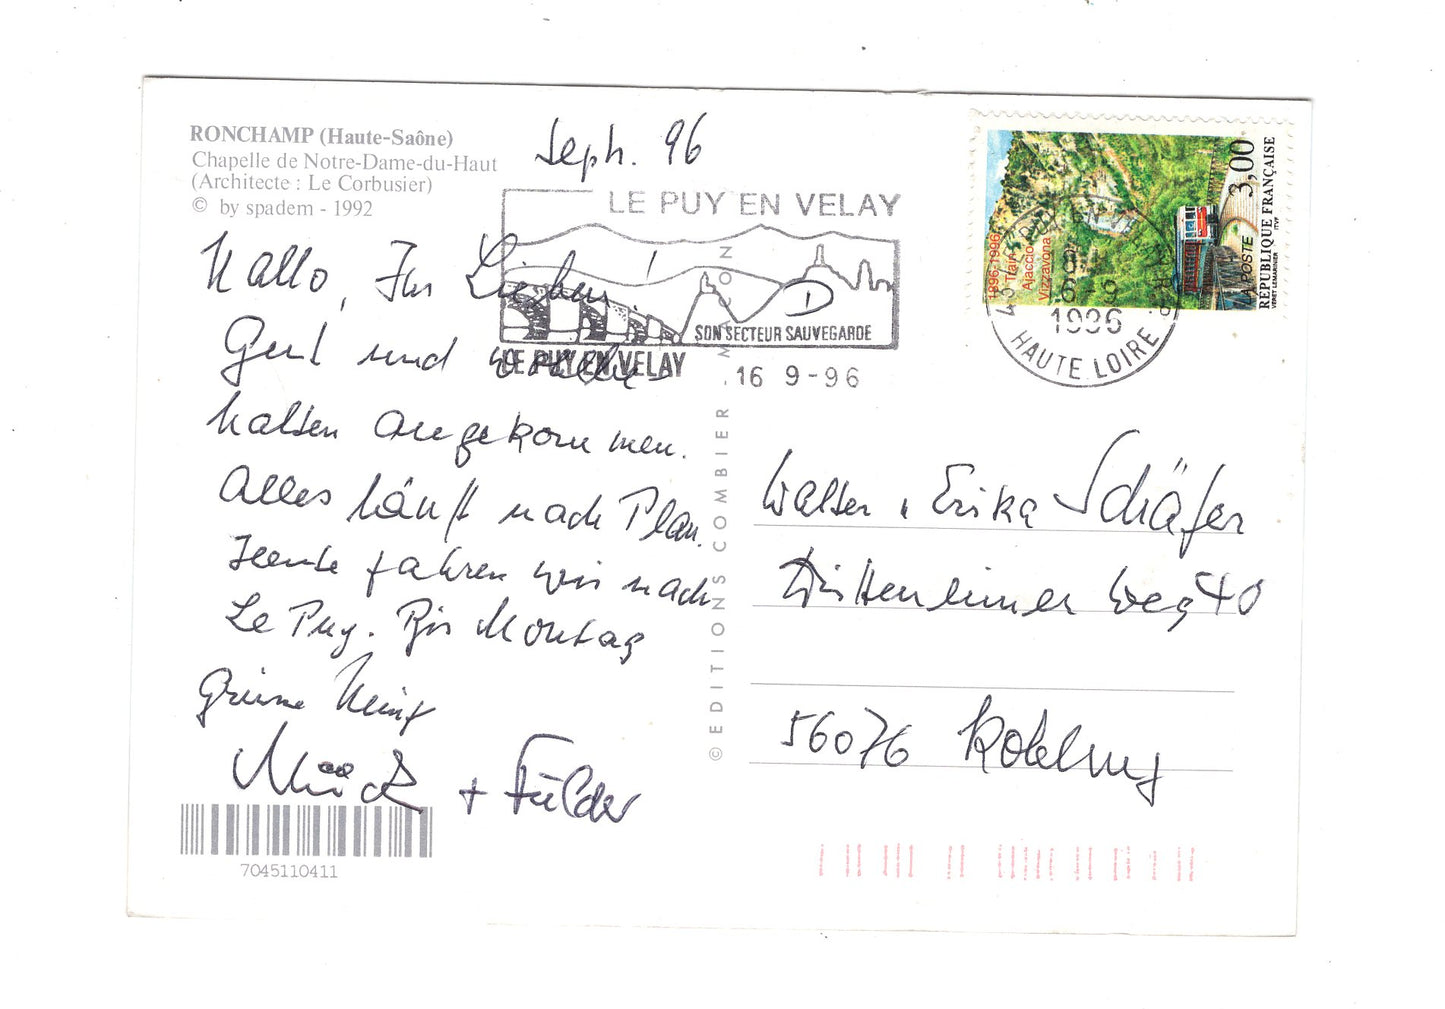 RONCHAMP (Haute-Saône)
Chapelle de Notre-Dame-du-Haut
(Architecte : Le Corbusier)
© by spadem - 1992
Sept. 96
Hallo, Ihr Lieben.
Gut und
halten angekommen.
Alles läuft nach Plan.
Heute fahren wir nach
Le Puy. Bis Montag
Grüsse
+
7045110411
LE PUY EN VELAY
SON SECTEUR SAUVEGARDE
LE PUY EN VELAY
16 9-96
1996
HAUTE LOIRE
1896-1996
Train
Ajaccio
Vizzavona
3,00
LA POSTE
RÉPUBLIQUE FRANÇAISE
© EDITIONS COMBIER MACON
Walter u. Erika Schäfer
Weg 40
56076 Koblenz